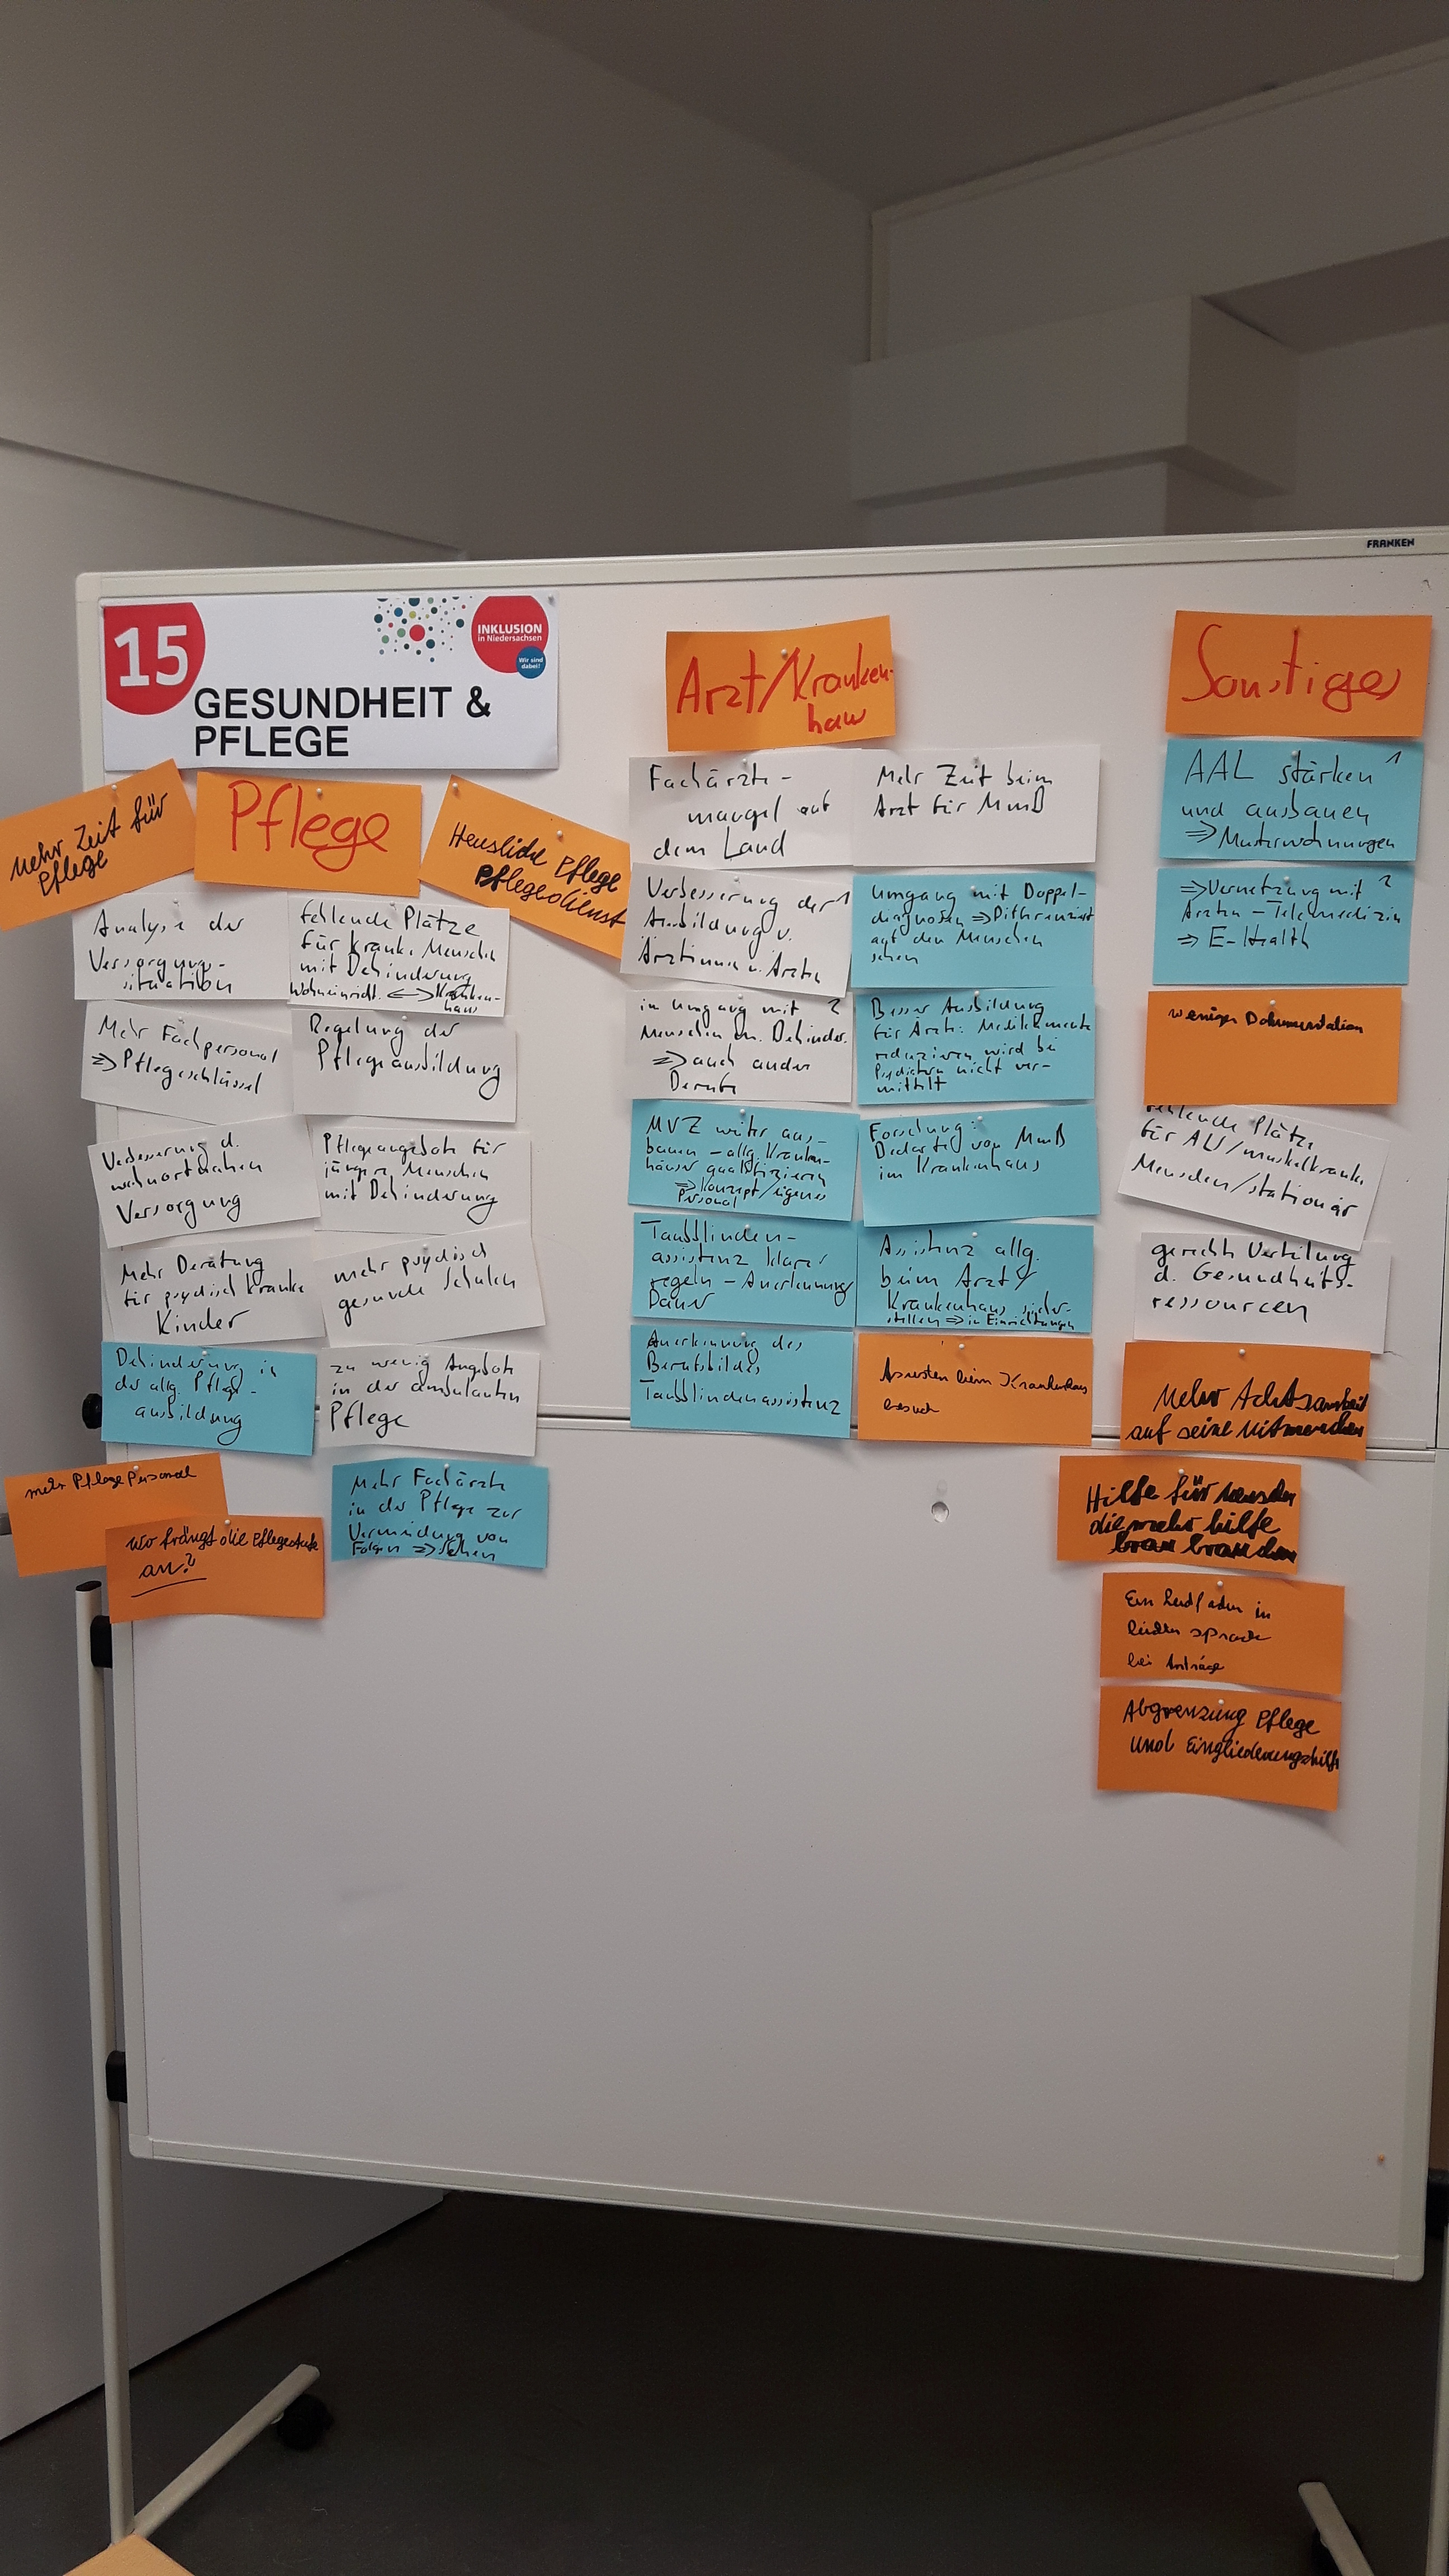 FRANKEN
15
INKLUSION
in Niedersachsen
Wir sind
dabei!
GESUNDHEIT &
PFLEGE
mehr Zeit für
Pflege
Pflege
Heusliche Pflege
Pflegedienst
Analyse der
Versorgungs-
situation
fehlende Plätze
für kranke Menschen
mit Behinderung
Wohneinricht. <-> Kranken-
haus
Mehr Fachpersonal
=> Pflegeschlüssel
Regelung der
Pflegeausbildung
Verbesserung d.
wohnortnahen
Versorgung
Pflegeangebote für
jüngere Menschen
mit Behinderung
Mehr Beratung
für psychisch kranke
Kinder
mehr psychisch
gesunde Schulen
Behinderung in
der allg. Pflege-
ausbildung
zu wenig Angebote
in der ambulanten
Pflege
mehr Pflege Personal
wo frängt die Pflegestufe
an?
Mehr Fachärzte
in der Pflege zur
Vermeidung von
Folgen => Sehen
Arzt/Kranken-
haus
Fachärzte-
mangel auf
dem Land
Mehr Zeit beim
Arzt für MmB
Verbesserung der 1
Ausbildung v.
Ärztinnen u. Ärzten
Umgang mit Doppel-
diagnosen => Differenziert
auf den Menschen
sehen
in Umgang mit 2
Menschen m. Behinder.
=> auch andere
Berufe
Besser Ausbildung
für Ärzte: Medikamente
reduzieren wird bei
Psychiatern nicht ver-
mittelt
MVZ weiter aus-
bauen - allg. Kranken-
häuser qualifizieren
=> Konzept/eigenes
Personal
Forschung:
Bedarfe von MmB
im Krankenhaus
Taubblinden-
assistenz klarer
regeln - Anerkennung
Dauer
Assistenz allg.
beim Arzt/
Krankenhaus sicher-
stellen => in Einrichtungen
Anerkennung des
Berufsbildes
Taubblindenassistenz
beim Krankenhaus
besuch
Sonstiges
AAL stärken 1
und ausbauen
=> Musterwohnungen
=> Vernetzung mit 2
Ärzten - Telemedizin
=> E-Health
weniger Dokumentation
fehlende Plätze
für ALS/muskelkranke
Menschen/stationär
gerechte Verteilung
d. Gesundheits-
ressourcen
Mehr Achtsamkeit
auf seine Mitmenschen
Hilfe für menschen
die mehr hilfe
brauchen
Ein Leidfaden in
leichter sprache
bei Anträge
Abgrenzung Pflege
und Eingliederungshilfe